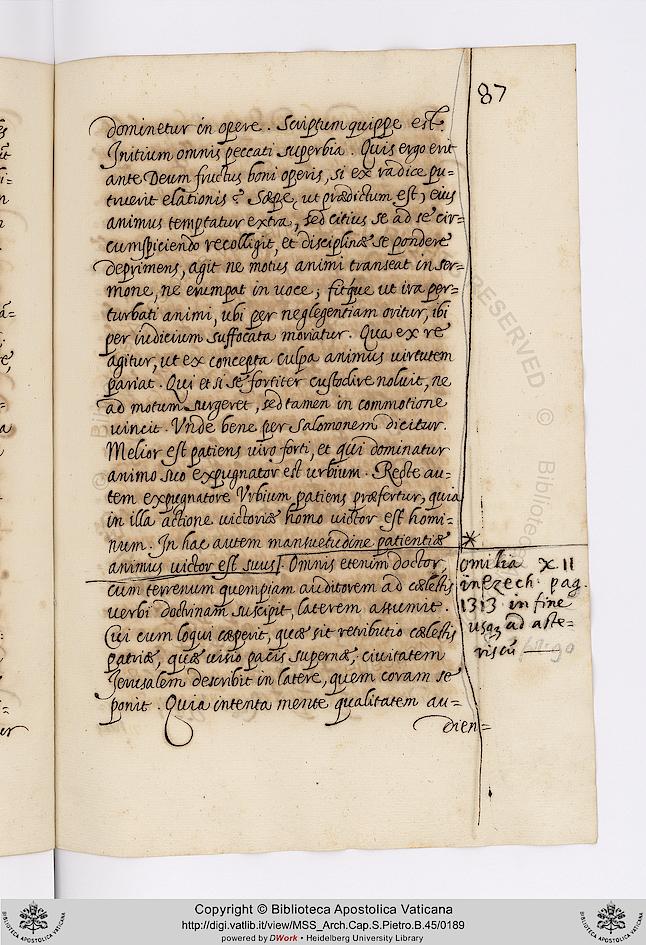 87
dominetur in opere. Scriptum quippe est.
Initium omnis peccati superbia. Quis ergo erit
ante Deum fructus boni operis, si ex radice pu-
truerit elationis? Sæpe, ut prædictum est, eius
animus temptatur extra, sed citius se ad se cir-
cumspiciendo recolligit, et disciplinæ se pondere
deprimens, agit ne motus animi transeat in ser-
mone, ne erumpat in uoce; fitque ut ira per-
turbati animi, ubi per neglegentiam oritur, ibi
per iudicium suffocata moriatur. Qua ex re
agitur, ut ex concepta culpa animus uirtutem
pariat. Qui et si se fortiter custodire noluit, ne
ad motum surgeret, sed tamen in commotione
uincit. Vnde bene per Salomonem dicitur.
Melior est patiens uiro forti, et qui dominatur
animo suo expugnator est urbium. Recte au-
tem expugnatore Vrbium patiens præfertur, quia
in illa actione uictoriæ homo uictor est homi-
num. In hac autem mansuetudine patientiæ
animus uictor est suus]. Omnis etenim doctor,
cum terrenum quempiam auditorem ad cælestis
uerbi doctrinam suscipit, laterem assumit.
Cui cum loqui cæperit, quæ sit retributio cælestis
patriæ, quæ uisio pacis supernæ, ciuitatem
Jerusalem describit in latere, quem coram se
ponit. Quia intenta mente qualitatem au-
dien-
*
omilia XII
in ezech. pag.
1313 in fine
usq; ad aste-
riscũ
Copyright © Biblioteca Apostolica Vaticana
http://digi.vatlib.it/view/MSS_Arch.Cap.S.Pietro.B.45/0189
powered by DWork • Heidelberg University Library
BIBLIOTECA APOSTOLICA VATICANA
BIBLIOTECA APOSTOLICA VATICANA
RESERVED © Biblioteca